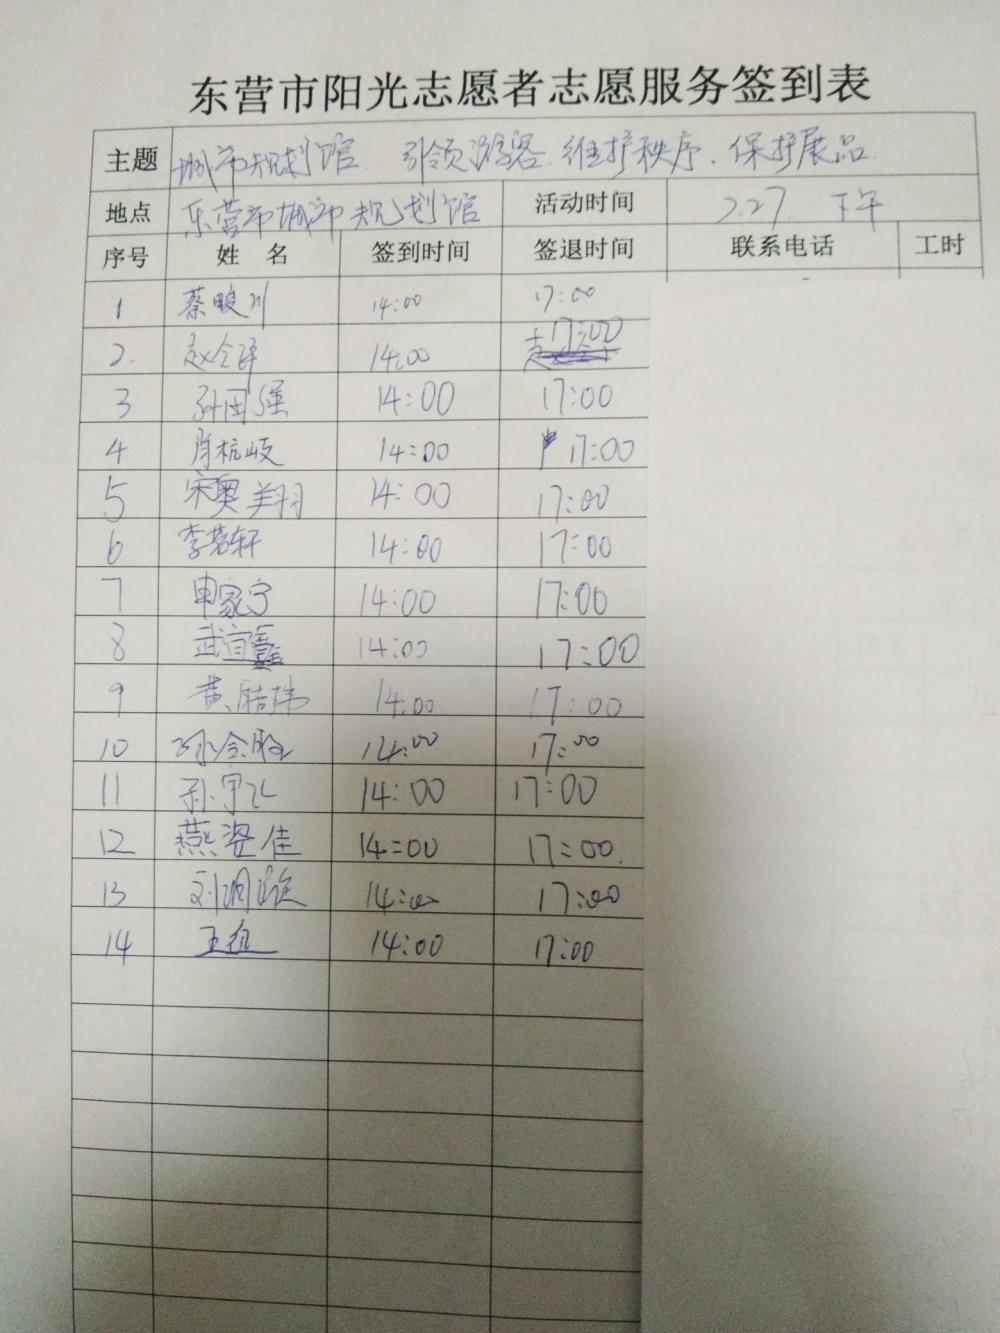 东营市阳光志愿者志愿服务签到表
主题 城市规划馆 引领游客.维护秩序.保护展品
地点 东营市城市规划馆 活动时间 2.27. 下午
序号 姓 名 签到时间 签退时间 联系电话 工时
1 蔡畯川 14:00 17:00
2. 14:00 17:00
3 孙国强 14:00 17:00
4 肖杭岐 14:00 17:00
5 宋奥翔 14:00 17:00
6 李若轩 14:00 17:00
7 申家宁 14:00 17:00
8 武宜鑫 14:00 17:00
9 14:00 17:00
10 14:00 17:00
11 14:00 17:00
12 燕姿佳 14:00 17:00.
13 14:00 17:00
14 14:00 17:00